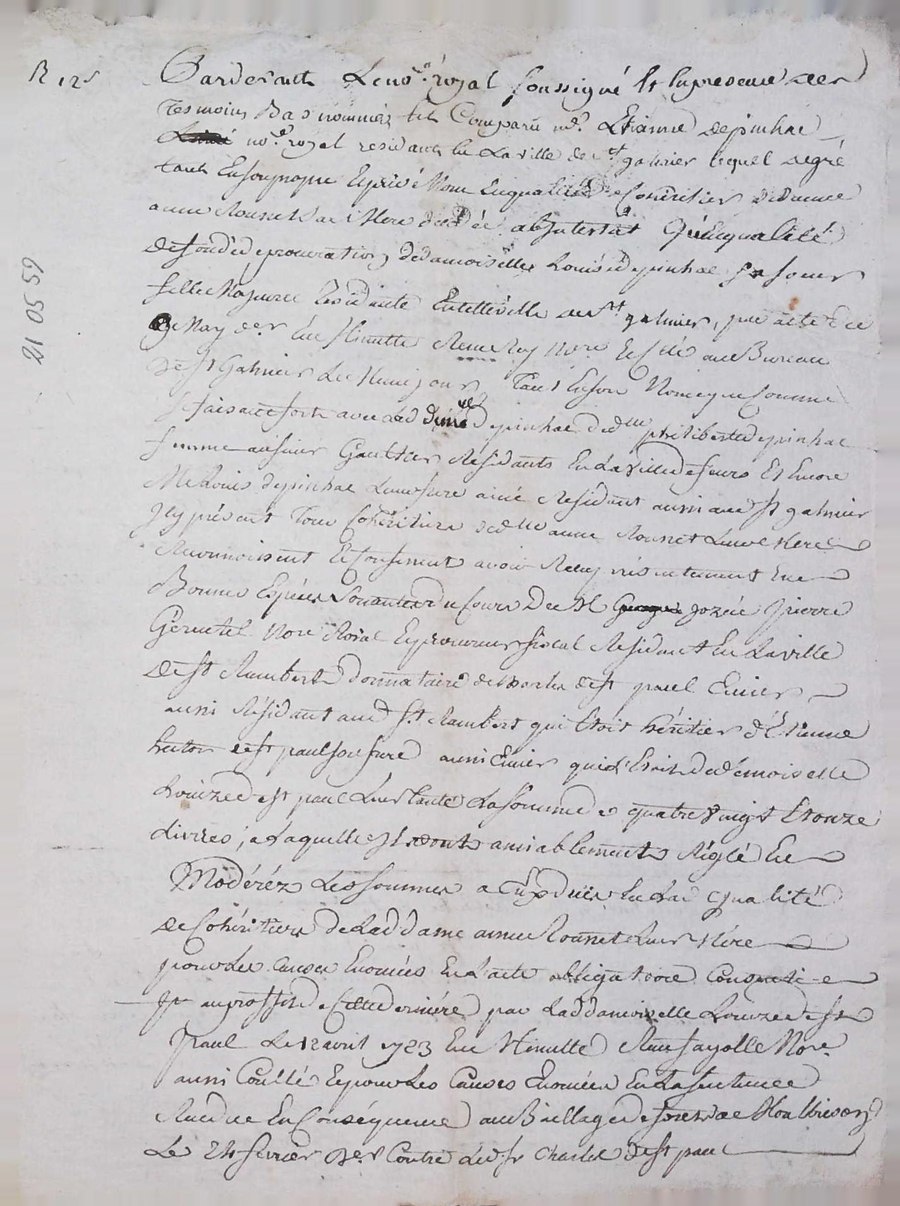 R 125
21 05 59
Pardevant Le no.re royal soussigné Et En presence des
Tesmoins Bas nommés fut Comparu m.e Etienne depinhac
no.re royal residant En La ville de s.t galmier lequel degré
tant En son propre Et privé Nom En qualité de Cohéritier de dame
anne Rounet Sa Mere decédée abintestat Qu'en qualité
de fondé de procuration de damoiselle Louise depinhac Sa soeur
fille Majeure Residante En cette ville de s.t galmier, par acte du
May der. Reçue Minutte Me Rey No.re au Bureau
de St Galmier Les Mêmes jours, Tant En son Nom que Comme
se faisant fort de Lad. depinhac de d.lle philiberte depinhac
femme au sieur Gaultier Residants En La ville de feurs Et Encore
Me Louis depinhac Leur frere ainé Residant aussi aud. st galmier
Icy présent Tous Cohéritiers de d.me anne Rounet Leur Mere
Reconnoissent Et Confessent avoir Reçu présentement En
Bonnes Espéces Sonantes du Cours De M. jozée pierre
No.re Roïal Et procureur fiscal Residant En La ville
de St Rambert donnataire de st paul Ecuier
aussi Résidant aud. St Rambert qui Etoit héritier d'Etienne
hector de st paul son frere aussi Ecuier qui L'Etoit de demoiselle
Louize de st paul Leur tante La somme de quatre Vingt Et onze
Livres, a Laquelle Ils ont amiablement Réglé Et
Modéréz Les Sommes a Eux dües En Lad. qualité
de Cohéritiers de Lad. dame anne Rounet Leur Mére
pour Les Causes Enoncées En L'acte obligatoire Consenti
au proffit de Cette derniére par Lad. damoiselle Louize de st
paul Le 12 avril 1723 Reçu Minutte Me fayolle No.re
aussi Coullé Et pour Les Causes Enoncées En La sentence
Rendue En Conséquence au Bailliage de forez de Montbrison
Le 24 fevrier der. Contre Led. sr Charles de st paul